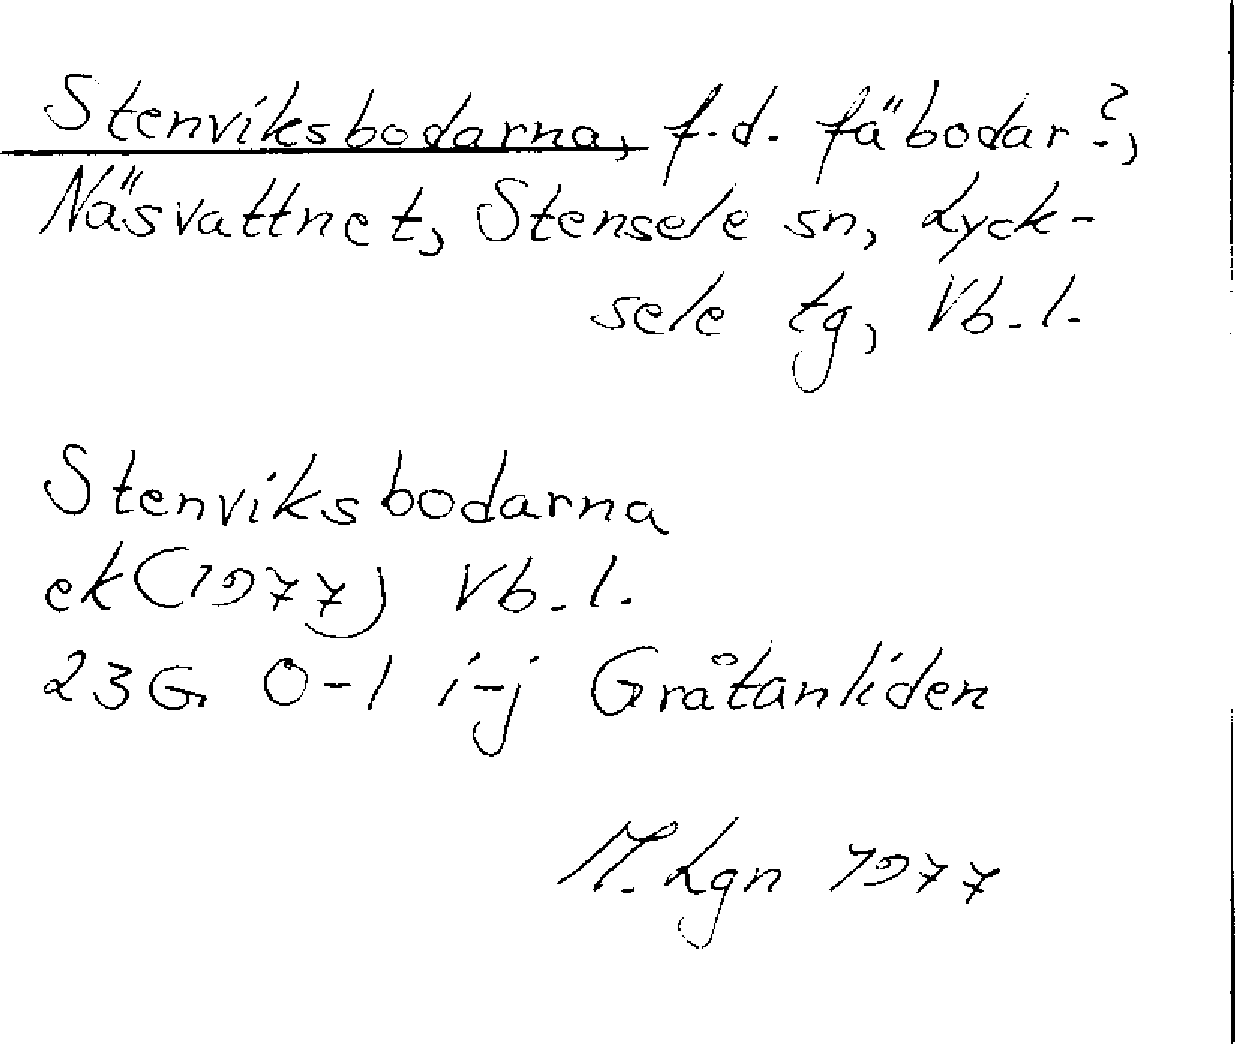 Stenviksbodarna, f.d. fäbodar?,
Näsvattnet, Stensele sn, Lyck-
sele tg, Vb.l.
Stenviksbodarna
ek(1977) Vb.l.
23G 0-1 i-j Gråtanliden
M. Lgn 1977